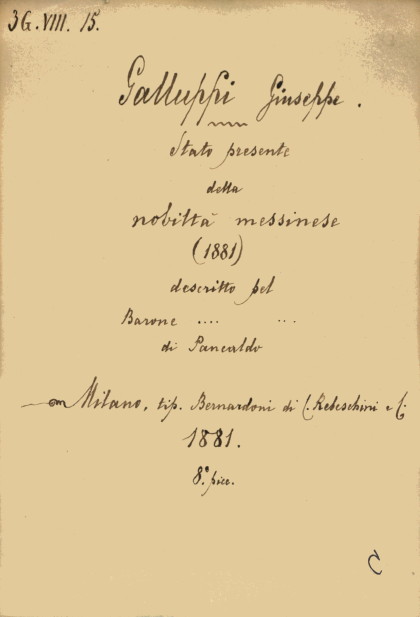 3 G. VIII. 15.
Galluppi Giuseppe.
Stato presente
della
nobiltà messinese
(1881)
descritto pel
Barone .... ...
di Pancaldo
Milano, tip. Bernardoni di C. Rebeschini e C.
1881.
8º picc.
C